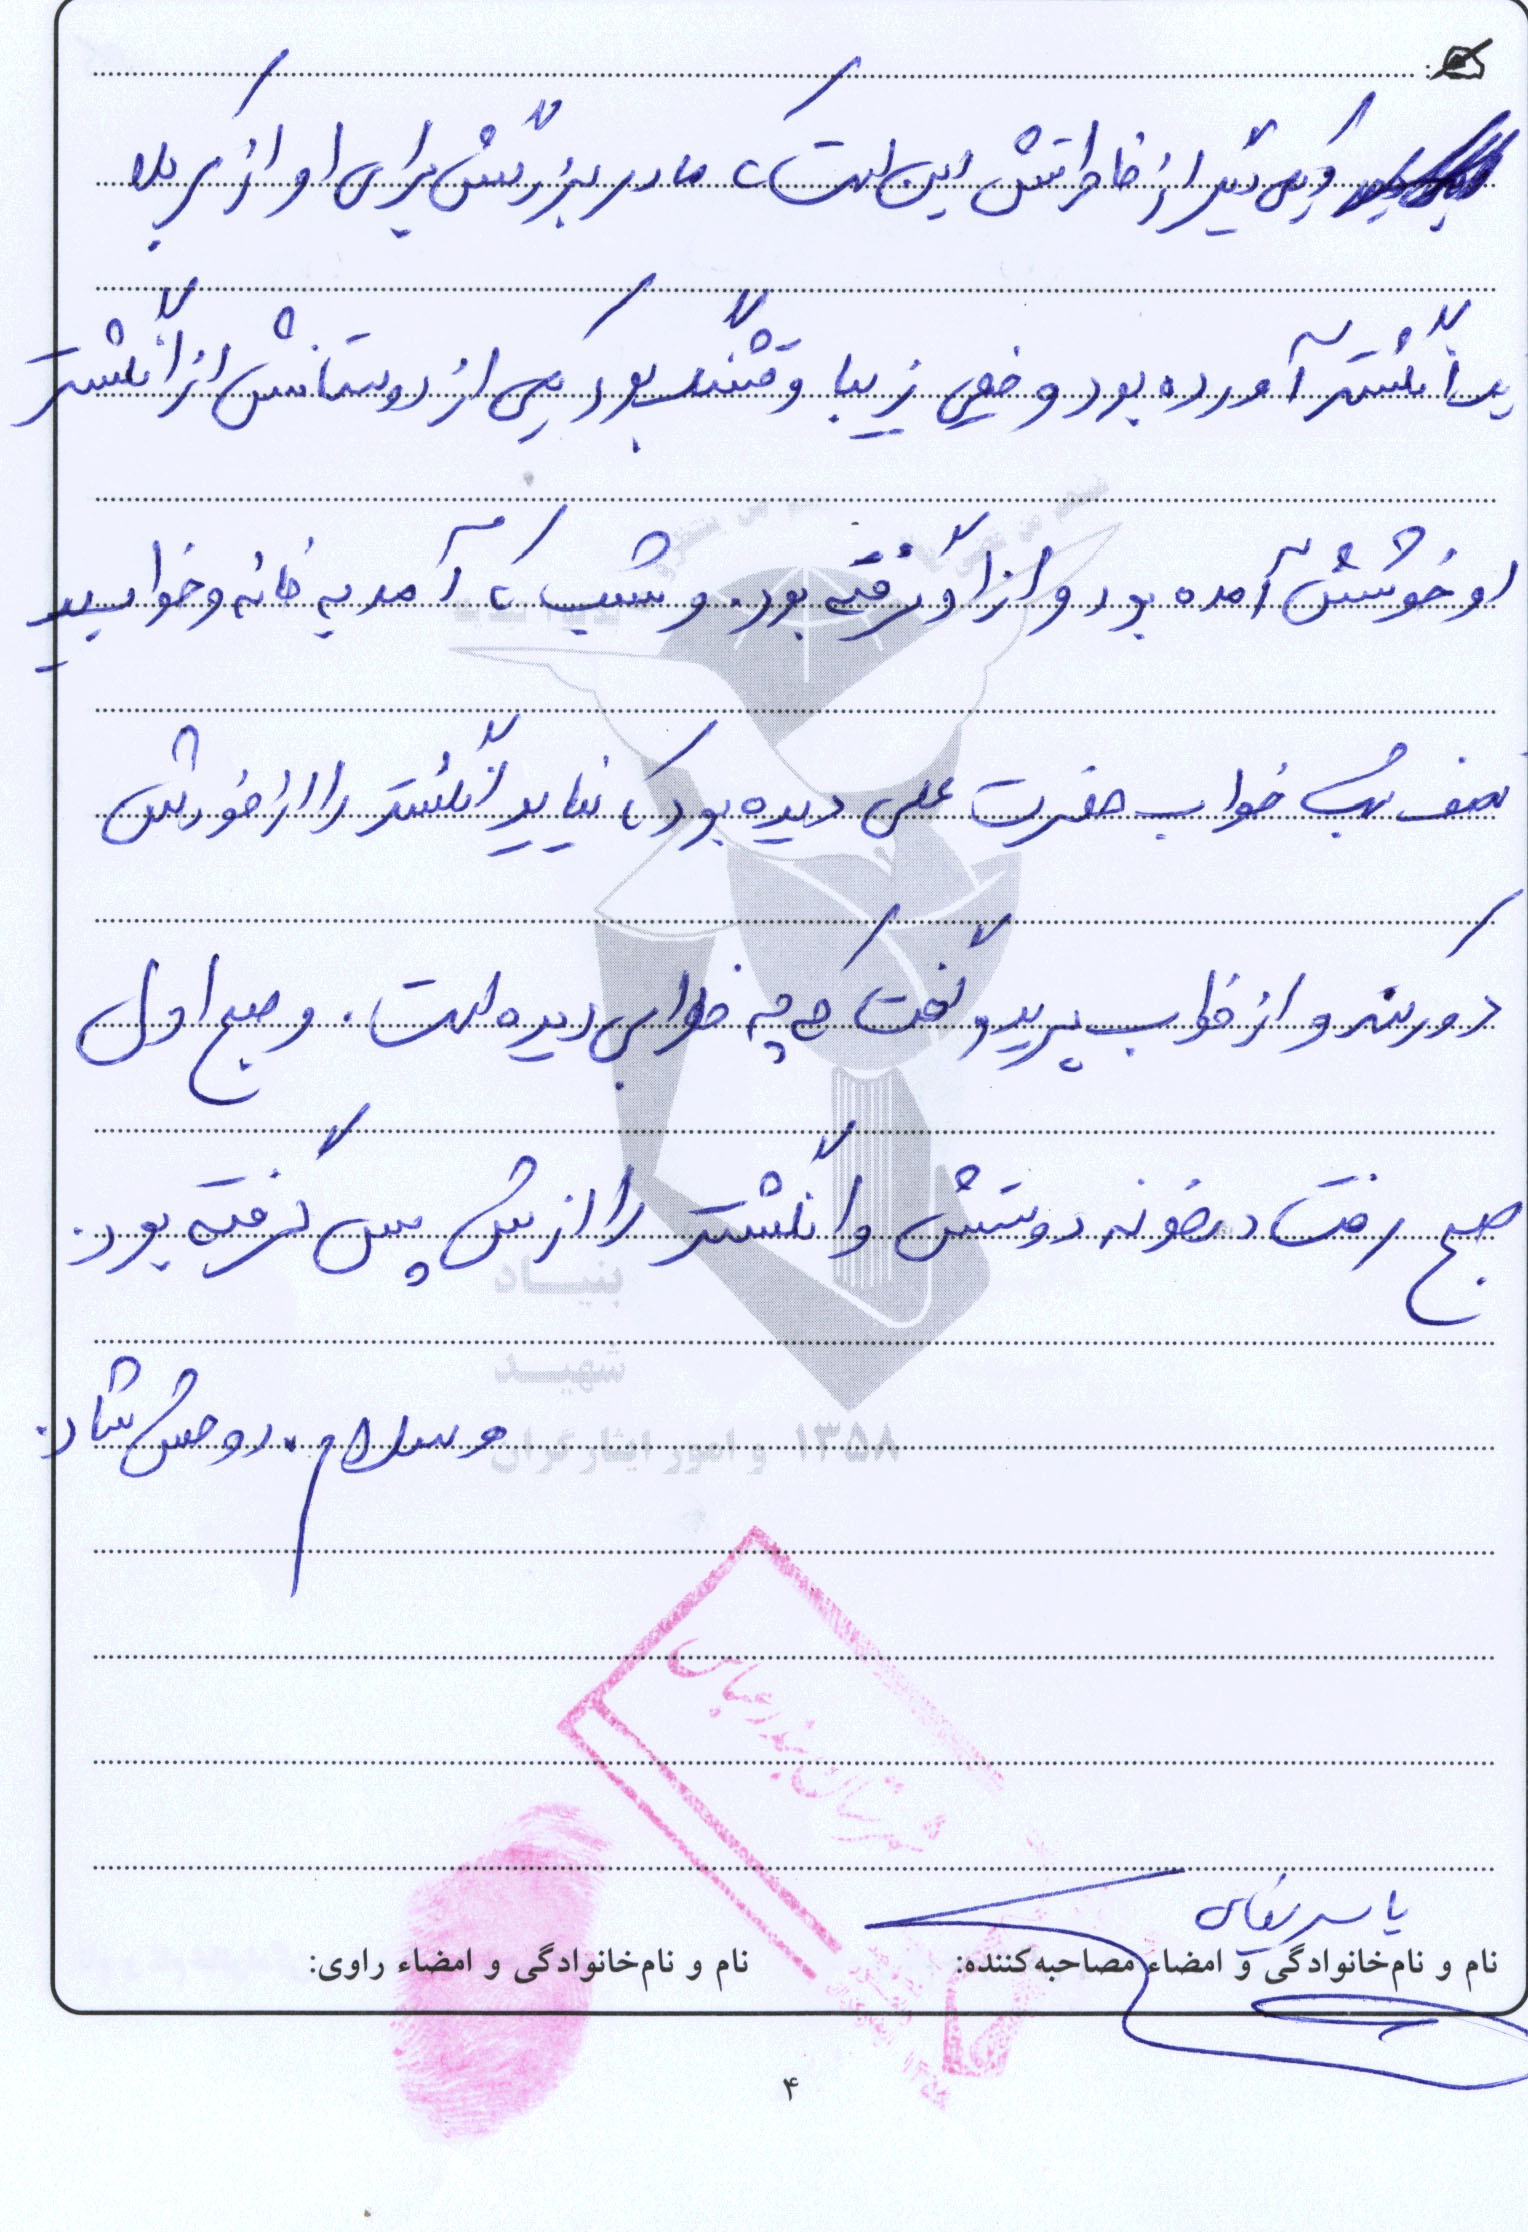 و یکی دیگر از خاطراتش این است که مادر بزرگش برای او از کربلا
یک انگشتر آورده بود و خیلی زیبا و قشنگ بود که یکی از دوستانش از انگشتر
او خوشش آمده بود و از او گرفته بود. و شب که آمد به خانه و خوابید
نصف شب خواب حضرت علی دیده بود که نباید انگشتر را از خودش
دور کند و از خواب پرید و گفت که چه خوابی دیده است. و صبح اول
صبح رفت در خونه دوستش و انگشتر را ازش پس گرفته بود.
وسلام. روحش شاد.
بنیاد
شهید
و امور ایثارگران ۱۳۵۸
شهرستان بندرعباس
یاسر بقایی
نام و نام‌خانوادگی و امضاء مصاحبه‌کننده:
نام و نام‌خانوادگی و امضاء راوی:
۴